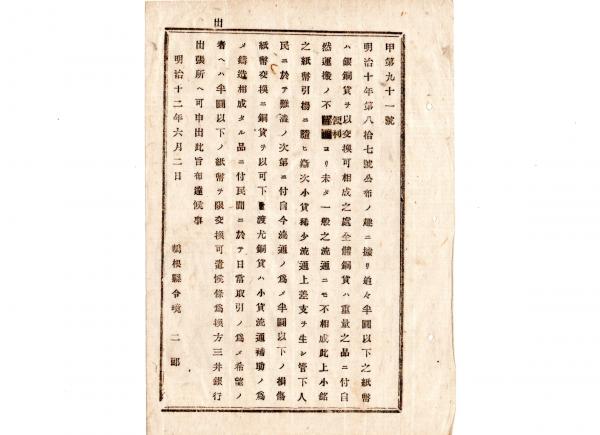 甲第九十一號
明治十年第八拾七號公布ノ趣ニ據リ追々半圓以下之紙幣
ハ銀銅貨ヲ以交換可相成之處全體銅貨ハ重量之品ニ付自
然運搬ノ不便利ヨリ未タ一般之流通ニモ不相成此上小額
之紙幣引揚ニ隨ヒ漸次小貨稀少流通上差支ヲ生シ管下人
民ニ於テ難澁ノ次第ニ付自今流通ノ爲メ半圓以下ノ損傷
紙幣交換ニ銅貨ヲ以可下渡尤銅貨ハ小貨流通補助ノ爲
メ鑄造相成タル品ニ付民間ニ於テ日當取引ノ爲メ希望ノ
者ヘハ半圓以下ノ紙幣ヲ限交換可遣候條爲換方三井銀行
出張所ヘ可申出此旨布達候事
明治十二年六月二日
島根縣令境 二郎
出